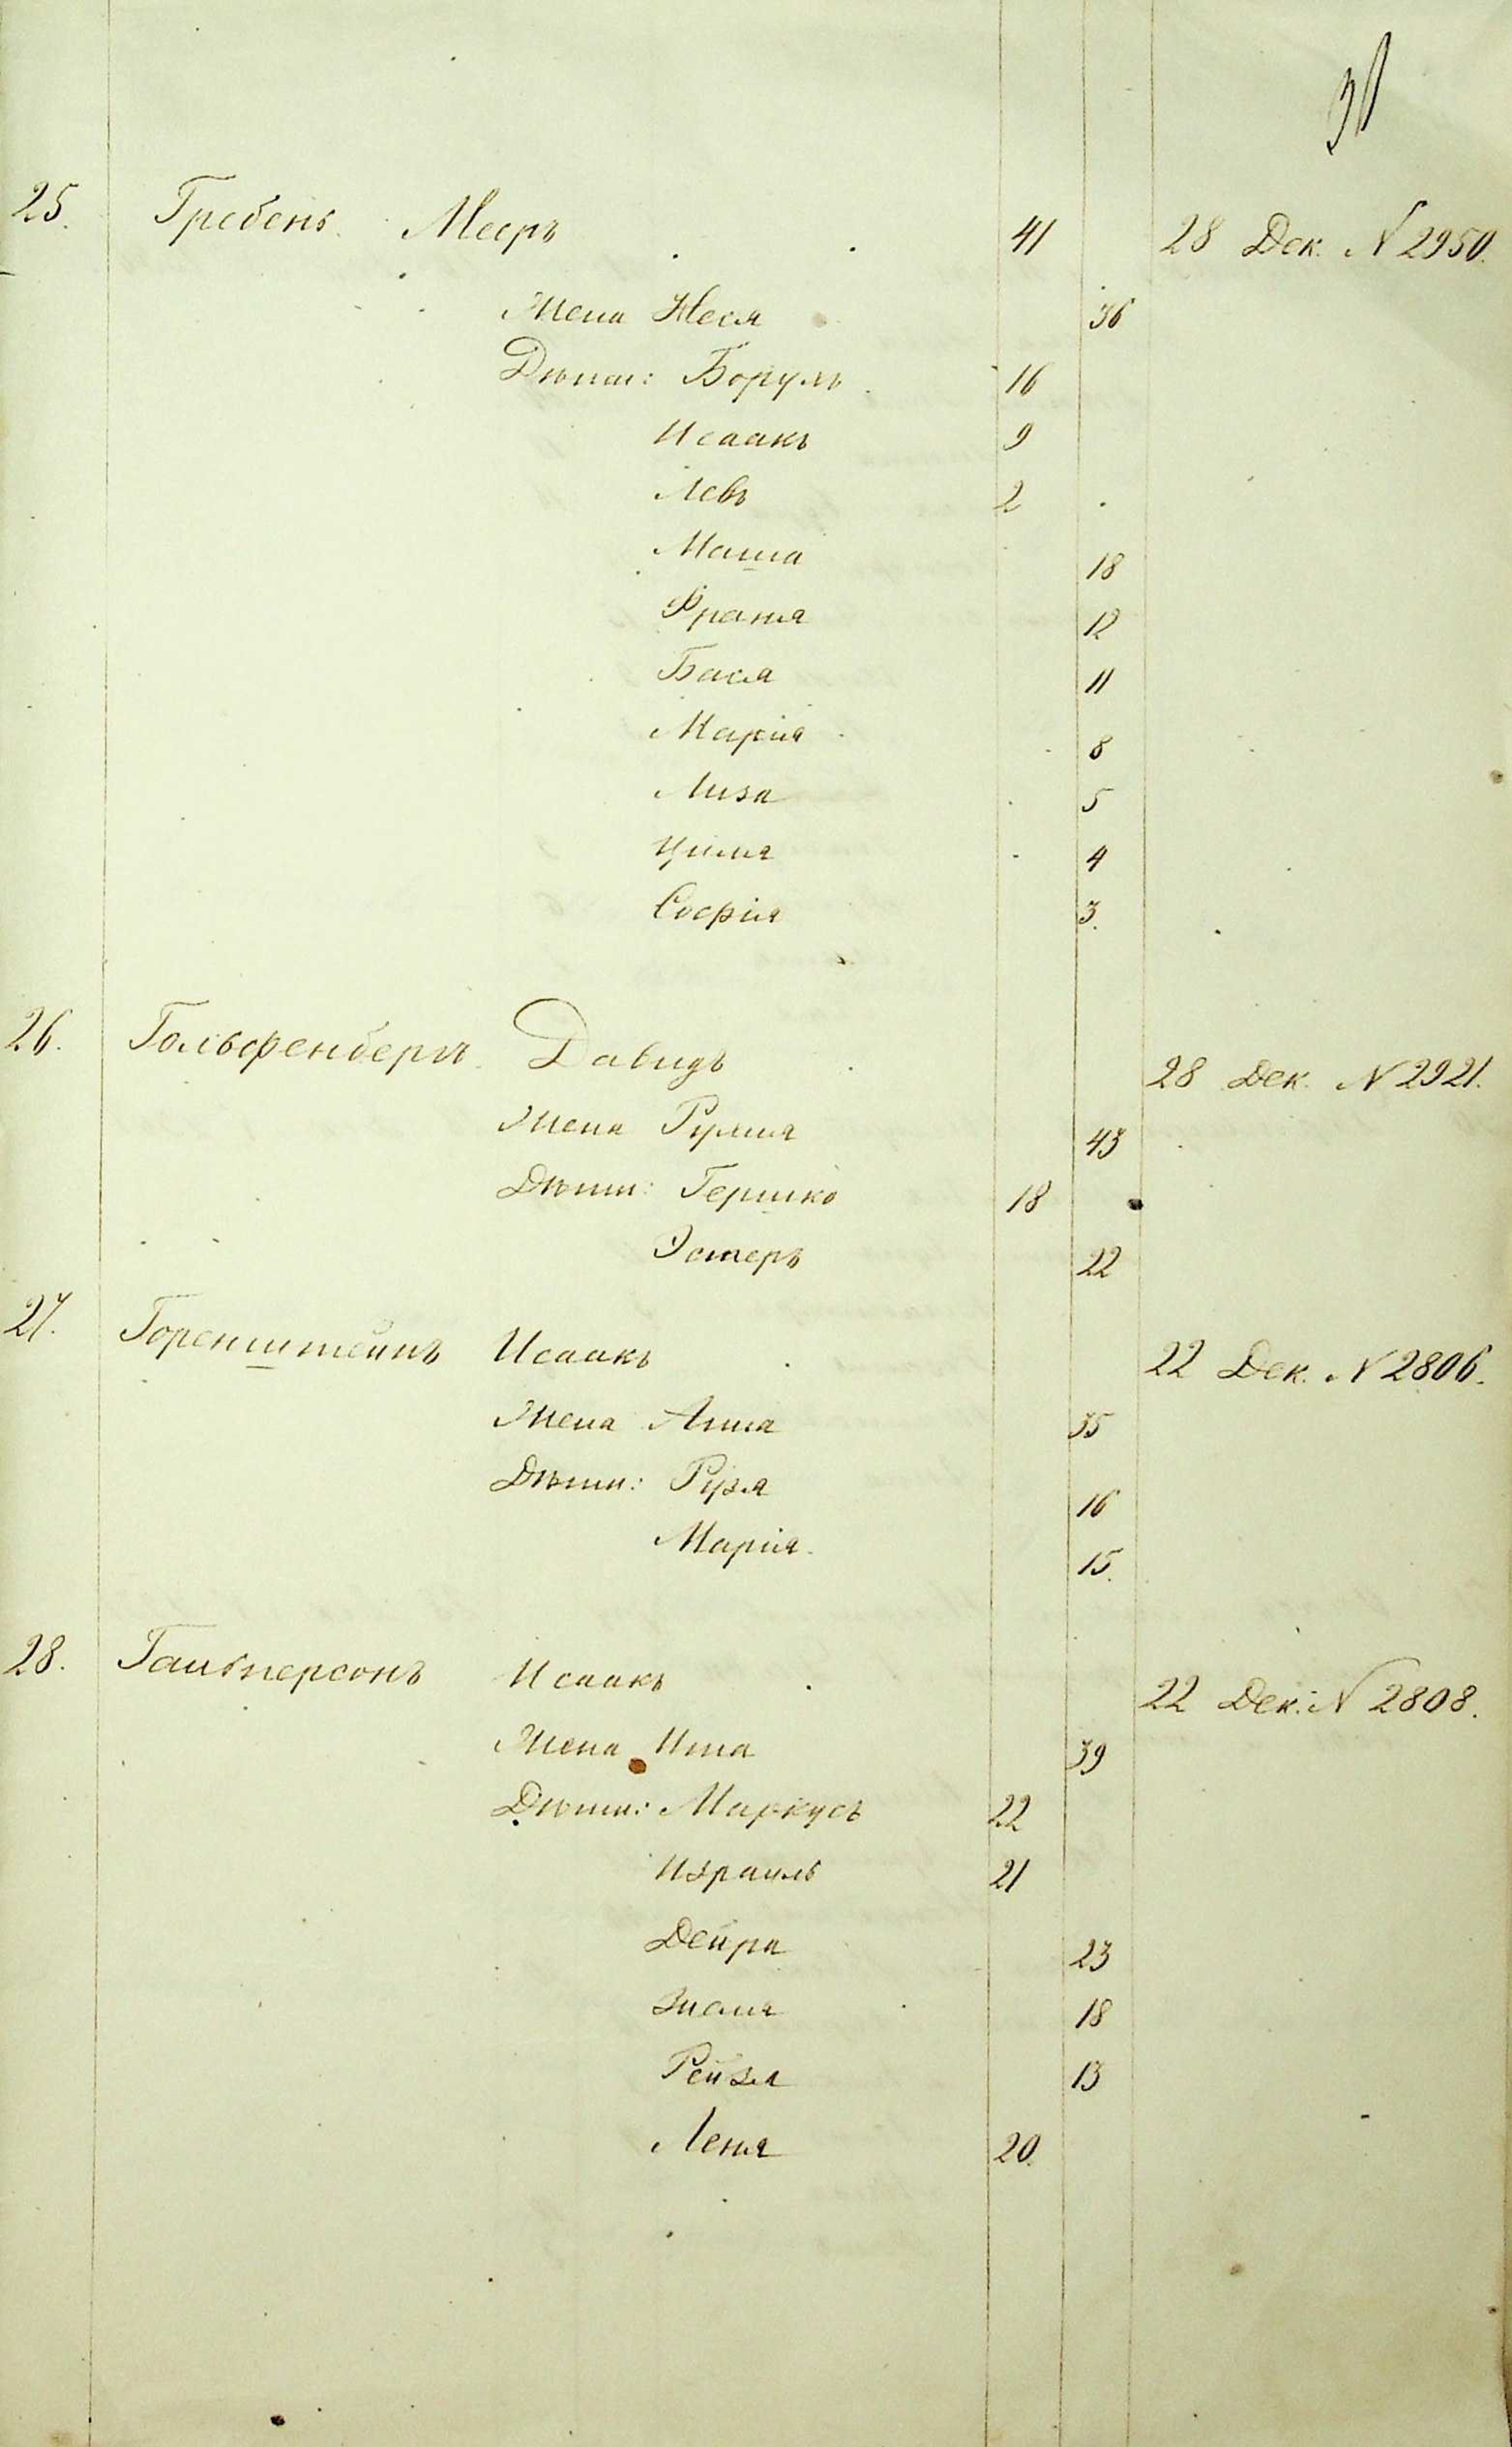 25. Гребень Меер 41 28 Дек. N 2950.
Жена Неся 36
Дѣти: Борухъ 16
Исаакъ 9
Левъ 2
Маша 18
Франя 12
Бася 11
Марія 8
Лиза 5
Циля 4
Софія 3.
26. Гольфенберг Давидъ 28 Дек. N 2921.
Жена 43
Дѣти: Гершко 18
Эстеръ 22
27. Горенштейнъ Исаакъ 22 Дек. N 2806.
Жена Анна 35
Дѣти: Рузя 16
Марія. 15.
28. Гальперсонъ Исаакъ 22 Дек. N 2808.
Жена Ита 39
Дѣти: Маркусъ 22
Израиль 21
Дейра 23
18
Рейзя 13
Леня 20.